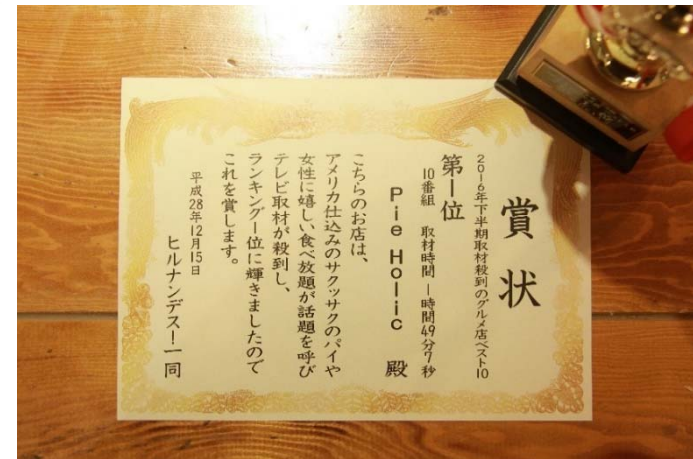 賞状
2016年下半期取材殺到のグルメ店ベスト10
第1位
10番組 取材時間 1時間49分7秒
Pie Holic 殿
こちらのお店は、
アメリカ仕込みのサクッサクのパイや
女性に嬉しい食べ放題が話題を呼び
テレビ取材が殺到し、
ランキング1位に輝きましたので
これを賞します。
平成28年12月15日
ヒルナンデス!一同